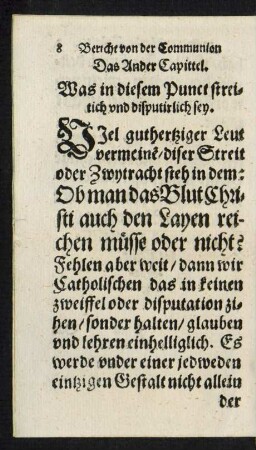 8 Bericht von der Communion
Das Ander Capittel.
Was in diesem Punct strei-
tich vnd disputirlich sey.
VJel guthertziger Leut
vermeinẽ/ diser Streit
oder Zwytracht steh in dem:
Ob man das Blut Chri-
sti auch den Layen rei-
chen müsse oder nicht?
Fehlen aber weit/ dann wir
Catholischen das in keinen
zweiffel oder disputation zi-
hen/ sonder halten/ glauben
vnd lehren einhelliglich. Es
werde vnder einer jedweden
eintzigen Gestalt nicht allein
der